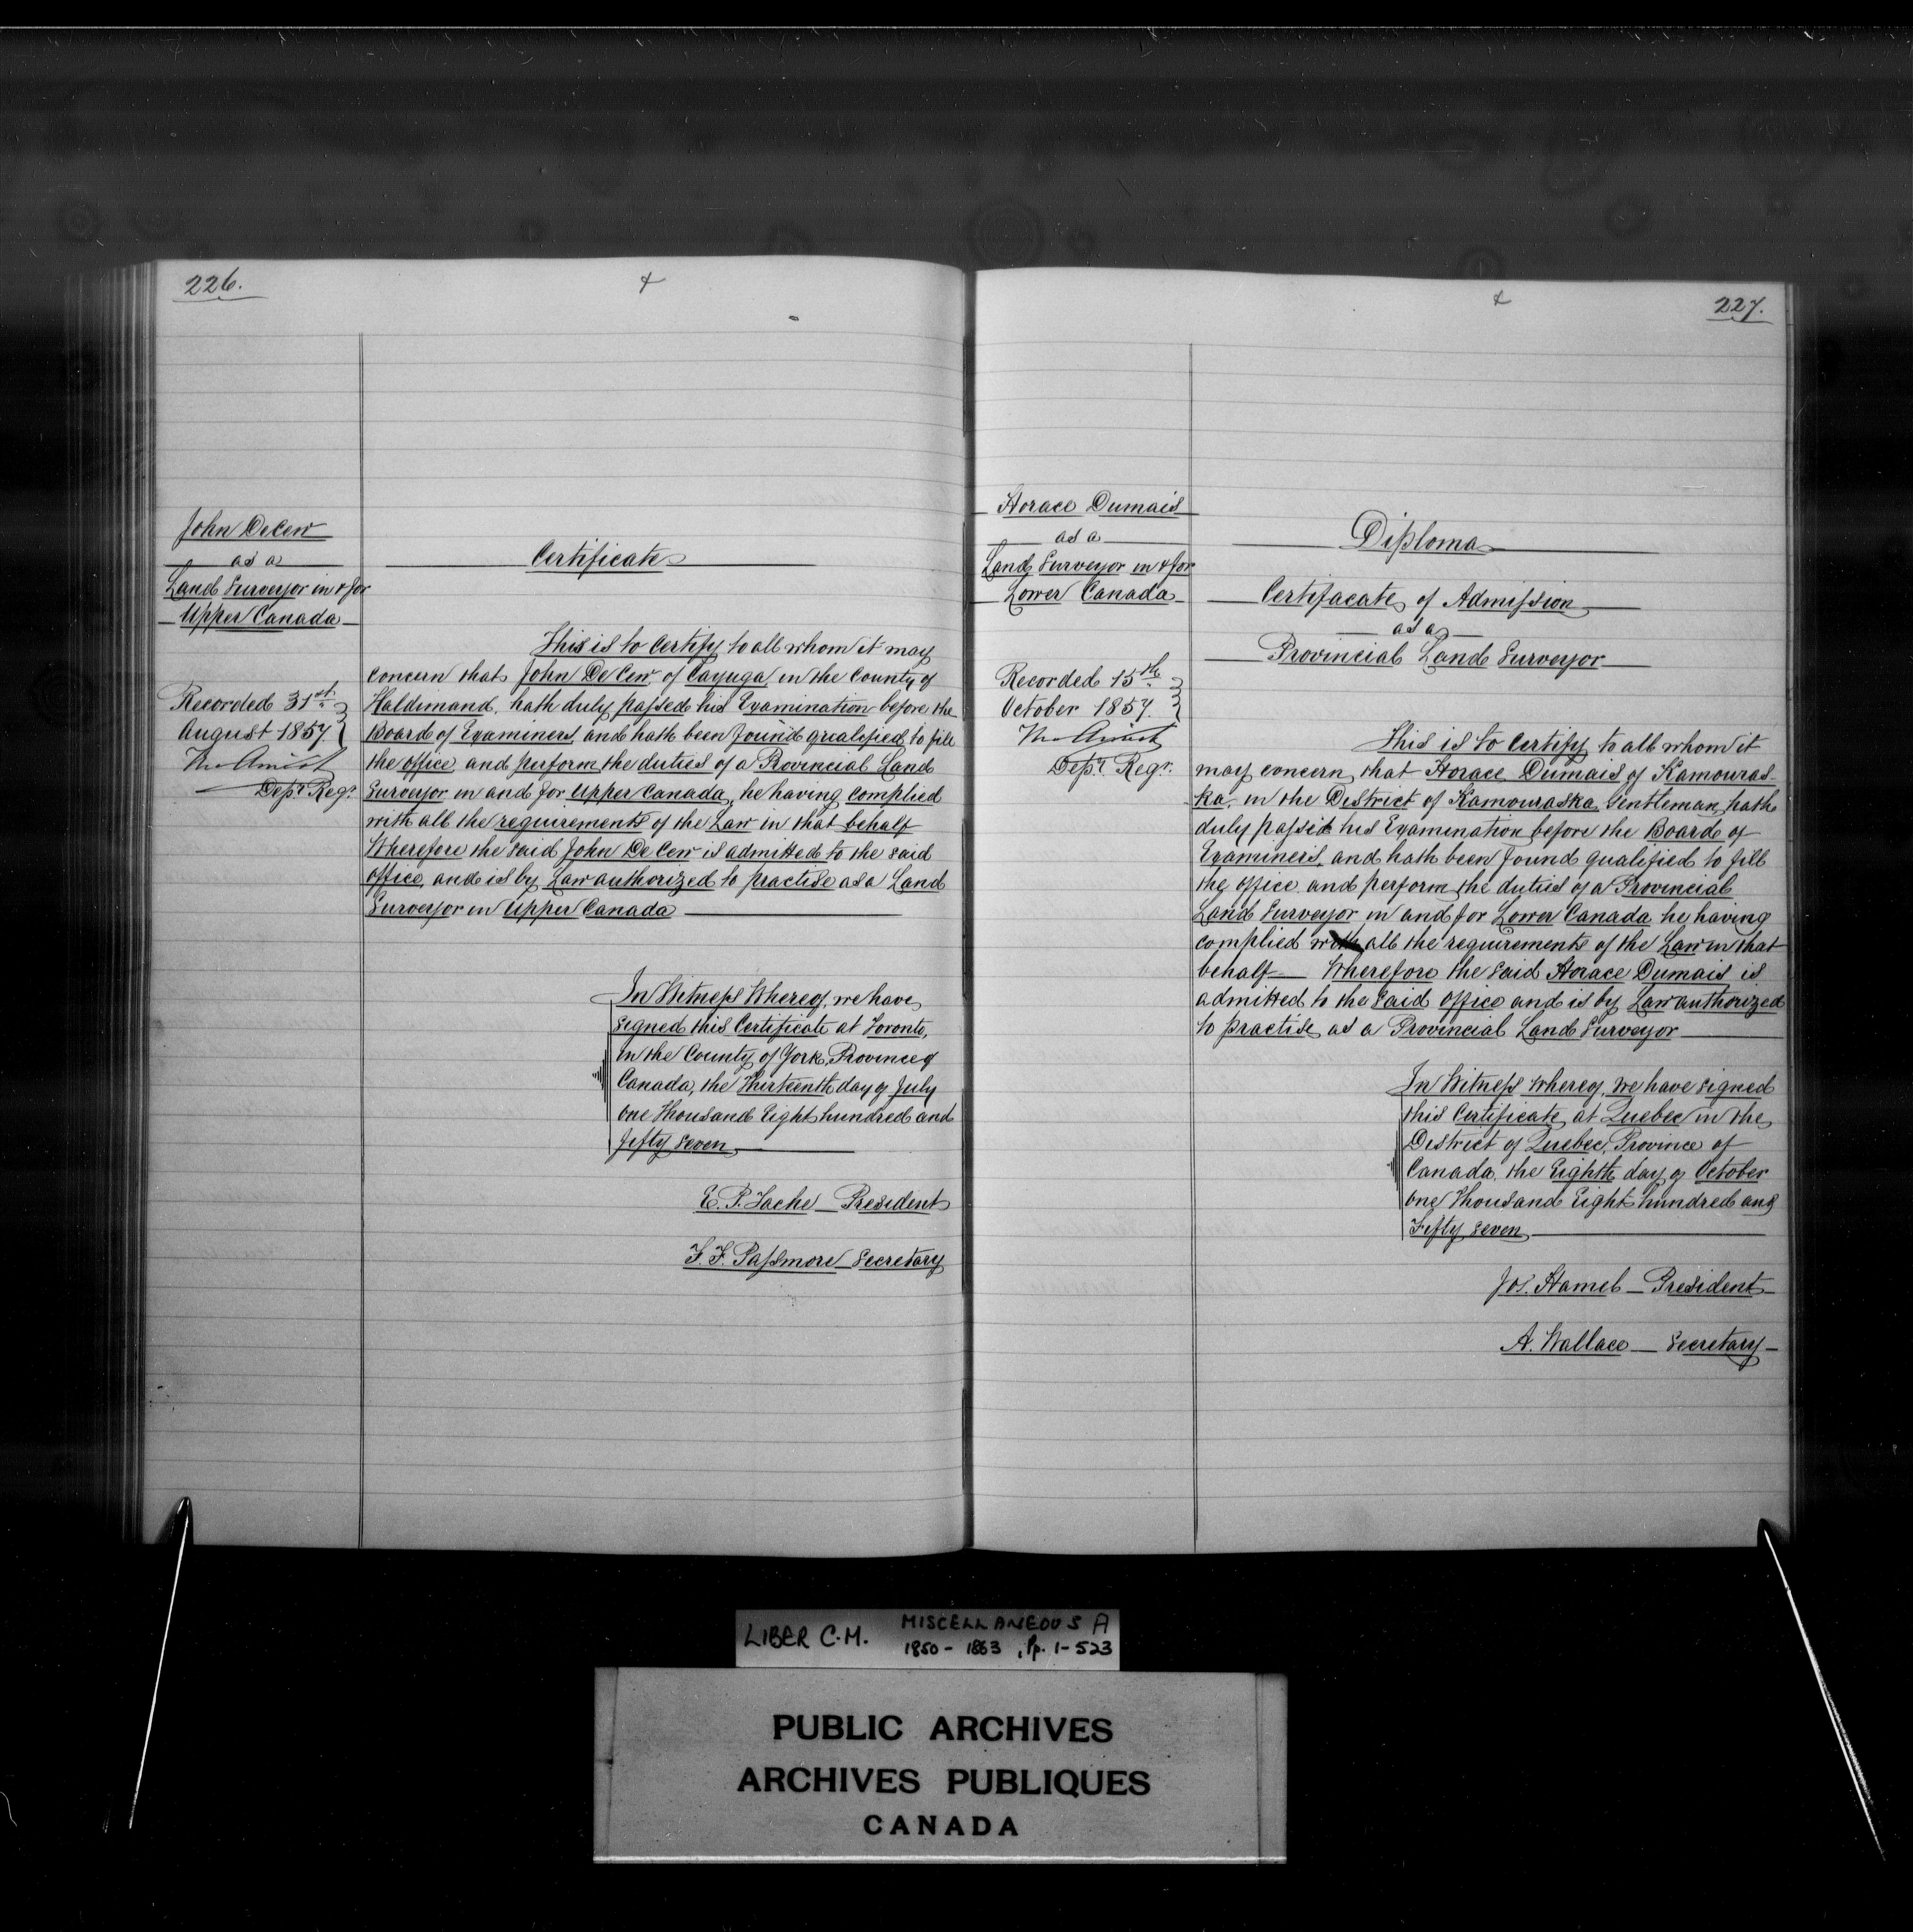 226.
John DeCew
as a
Land Surveyor in & for
Upper Canada
Recorded 31st
August 1857.
Depy Regr.
Certificate
This is to Certify to all whom it may
concern that John De Cew of Cayuga in the County of
Haldimand, hath duly passed his Examination before the
Board of Examiners, and hath been found qualified to fill
the office and perform the duties of a Provincial Land
Surveyor in and for Upper Canada, he having complied
with all the requirements of the Law in that behalf
Wherefore the said John De Cew is admitted to the said
office, and is by Law authorized to practise as a Land
Surveyor in Upper Canada
In Witness Whereof, we have
signed this Certificate at Toronto,
in the County of York, Province of
Canada, the Thirteenth day of July
one Thousand Eight hundred and
fifty seven
E. P. Tache President
F. F. Passmore Secretary
227.
Horace Dumais
as a
Land Surveyor in & for
Lower Canada
Recorded 15th
October 1857.
Depy Regr.
Diploma
Certifacate of Admission
as a
Provincial Land Surveyor
This is to Certify to all whom it
may concern, that Horace Dumais of Kamouras-
ka, in the District of Kamouraska, Gentleman, hath
duly passed his Examination before the Board of
Examiners, and hath been found qualified to fill
the office and perform the duties of a Provincial
Land Surveyor in and for Lower Canada he having
complied with all the requirements of the Law in that
behalf Wherefore the said Horace Dumais is
admitted to the said office and is by Law authorized
to practise as a Provincial Land Surveyor
In Witness whereof, we have signed
this Certificate at Quebec in the
District of Quebec, Province of
Canada, the Eighth day of October
one Thousand Eight hundred and
Fifty seven
Jos. Hamel President
A. Wallace Secretary
LIBER C.M. MISCELLANEOUS A
1850 - 1863, Pp. 1-523
PUBLIC ARCHIVES
ARCHIVES PUBLIQUES
CANADA